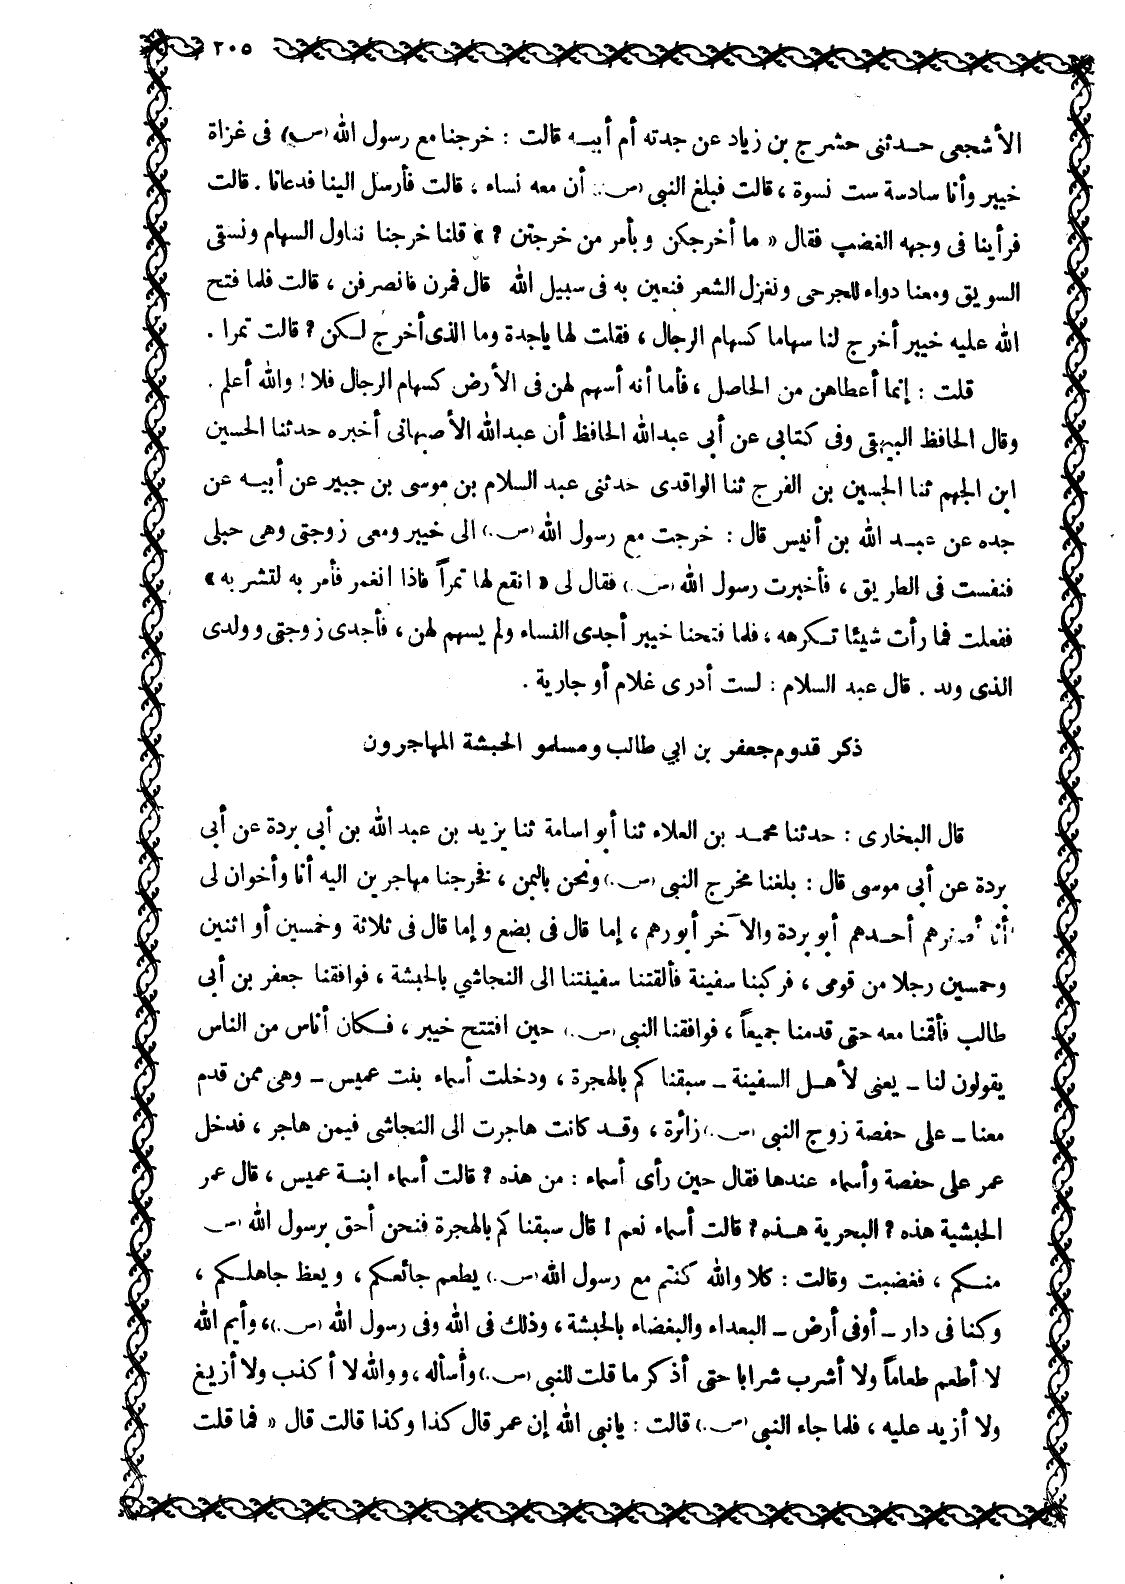 ٢٠٥
الأشجعى حدثنى حشرج بن زياد عن جدته أم أبيه قالت : خرجنا مع رسول الله (ص) فى غزاة
خيبر وأنا سادسة ست نسوة ، قالت فبلغ النبى (ص) أن معه نساء ، قالت فأرسل الينا فدعانا . قالت
فرأينا فى وجهه الغضب فقال « ما أخرجكن وبأمر من خرجتن ? » قلنا خرجنا نناول السهام ونسقى
السويق ومعنا دواء للجرحى ونغزل الشعر فنعين به فى سبيل الله قال فمرن فانصرفن ، قالت فلما فتح
الله عليه خيبر أخرج لنا سهاما كسهام الرجال ، فقلت لها ياجدة وما الذى أخرج لكن ? قالت تمرا .
قلت : إنما أعطاهن من الحاصل ، فأما أنه أسهم لهن فى الأرض كسهام الرجال فلا ! والله أعلم .
وقال الحافظ البيهقى وفى كتابى عن أبى عبدالله الحافظ أن عبدالله الأصبهانى أخبره حدثنا الحسين
ابن الجهم ثنا الحسين بن الفرج ثنا الواقدى حدثنى عبد السلام بن موسى بن جبير عن أبيه عن
جده عن عبد الله بن أنيس قال : خرجت مع رسول الله (ص.) الى خيبر ومعى زوجتى وهى حبلى
فنفست فى الطريق ، فأخبرت رسول الله (ص.) فقال لى « انقع لها تمراً فاذا انغمر فأمر به لتشربه »
ففعلت فما رأت شيئا تكرهه ، فلما فتحنا خيبر أجدى النساء ولم يسهم لهن ، فأجدى زوجتى وولدى
الذى ولد . قال عبد السلام : لست أدرى غلام أو جارية .
ذكر قدوم جعفر بن ابي طالب ومسلمو الحبشة المهاجرون
قال البخارى : حدثنا محمد بن العلاء ثنا أبو اسامة ثنا يزيد بن عبد الله بن أبي بردة عن أبى
بردة عن أبى موسى قال : بلغنا مخرج النبى (ص.) ونحن باليمن ، فخرجنا مهاجرين اليه أنا وأخوان لى
أنا أصغرهم أحدهم أبو بردة والآخر أبو رهم ، إما قال فى بضع وإما قال فى ثلاثة وخمسين أو اثنين
وخمسين رجلا من قومى ، فركبنا سفينة فألقتنا سفينتنا الى النجاشي بالحبشة ، فوافقنا جعفر بن أبى
طالب فأقمنا معه حتى قدمنا جميعاً ، فوافقنا النبى (ص.) حين افتتح خيبر ، فكان أناس من الناس
يقولون لنا ـ يعنى لأهل السفينة ـ سبقناكم بالهجرة ، ودخلت أسماء بنت عميس ـ وهى ممن قدم
معنا ـ على حفصة زوج النبى (ص.) زائرة ، وقد كانت هاجرت الى النجاشى فيمن هاجر ، فدخل
عمر على حفصة وأسماء عندها فقال حين رأى أسماء : من هذه ? قالت أسماء ابنة عميس ، قال عمر
الحبشية هذه ? البحرية هذه ? قالت أسماء نعم ! قال سبقناكم بالهجرة فنحن أحق برسول الله (ص
منكم ، فغضبت وقالت : كلا والله كنتم مع رسول الله (ص.) يطعم جائعكم ، ويعظ جاهلكم ،
وكنا فى دار ـ أوفى أرض ـ البعداء والبغضاء بالحبشة ، وذلك فى الله وفى رسول الله (ص.)، وأيم الله
لا أطعم طعاماً ولا أشرب شرابا حتى أذكر ما قلت للنبى (ص.) وأسأله ، ووالله لا أكذب ولا أزيغ
ولا أزيد عليه ، فلما جاء النبى (ص.) قالت : يانبى الله إن عمر قال كذا وكذا قالت قال « فما قلت